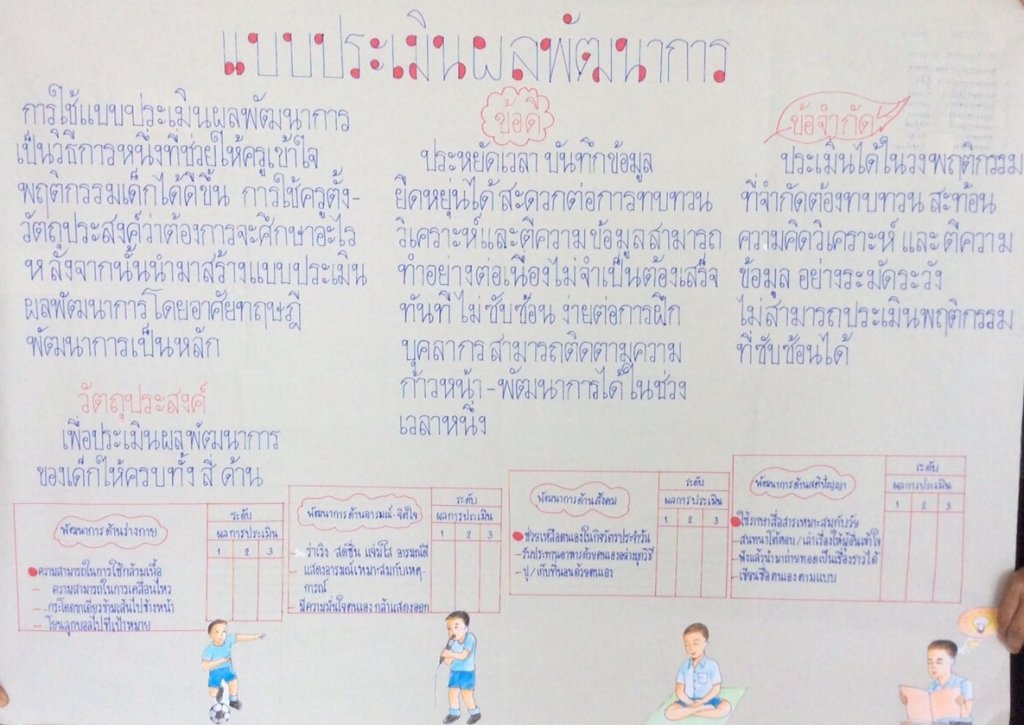 แบบประเมินผลพัฒนาการ
การใช้แบบประเมินผลพัฒนาการ
เป็นวิธีการหนึ่งที่ช่วยให้ครูเข้าใจ
พฤติกรรมเด็กได้ดีขึ้น การใช้ครูตั้ง-
วัตถุประสงค์ว่าต้องการจะศึกษาอะไร
หลังจากนั้นนำมาสร้างแบบประเมิน
ผลพัฒนาการโดยอาศัยทฤษฎี
พัฒนาการเป็นหลัก
วัตถุประสงค์
เพื่อประเมินผลพัฒนาการ
ของเด็กให้ครบทั้ง สี่ ด้าน
ข้อดี
ประหยัดเวลา บันทึกข้อมูล
ยืดหยุ่นได้ สะดวกต่อการทบทวน
วิเคราะห์และตีความข้อมูลสามารถ
ทำอย่างต่อเนื่องไม่จำเป็นต้องเสร็จ
ทันที ไม่ซับซ้อน ง่ายต่อการฝึก
บุคลากร สามารถติดตามความ
ก้าวหน้า - พัฒนาการได้ในช่วง
เวลาหนึ่ง
ข้อจำกัด
ประเมินได้ในวงพฤติกรรม
ที่จำกัดต้องทบทวน สะท้อน
ความคิดวิเคราะห์ และตีความ
ข้อมูล อย่างระมัดระวัง
ไม่สามารถประเมินพฤติกรรม
ที่ซับซ้อนได้
พัฒนาการด้านร่างกาย
ระดับ
ผลการประเมิน
1 2 3
ความสามารถในการใช้กล้ามเนื้อ
- ความสามารถในการเคลื่อนไหว
- กระโดดขาเดียวข้ามเส้นไปข้างหน้า
- โยนลูกบอลไปที่เป้าหมาย
พัฒนาการด้านอารมณ์-จิตใจ
ระดับ
ผลการประเมิน
1 2 3
- ร่าเริง สดชื่น แจ่มใส อารมณ์ดี
- แสดงอารมณ์เหมาะสมกับเหตุ-
การณ์
- มีความมั่นใจตนเอง กล้าแสดงออก
พัฒนาการด้านสังคม
ระดับ
ผลการประเมิน
1 2 3
ช่วยเหลือตนเองในกิจวัตรประจำวัน
- รับประทานอาหารด้วยตนเองอย่างถูกวิธี
- ปู / เก็บที่นอนด้วยตนเอง
พัฒนาการด้านสติปัญญา
ระดับ
ผลการประเมิน
1 2 3
ใช้ภาษาสื่อสารเหมาะสมกับวัย
- สนทนาโต้ตอบ / เล่าเรื่องให้ผู้อื่นเข้าใจ
- ฟังแล้วนำมาถ่ายทอดเป็นเรื่องราวได้
- เขียนชื่อตนเองตามแบบ